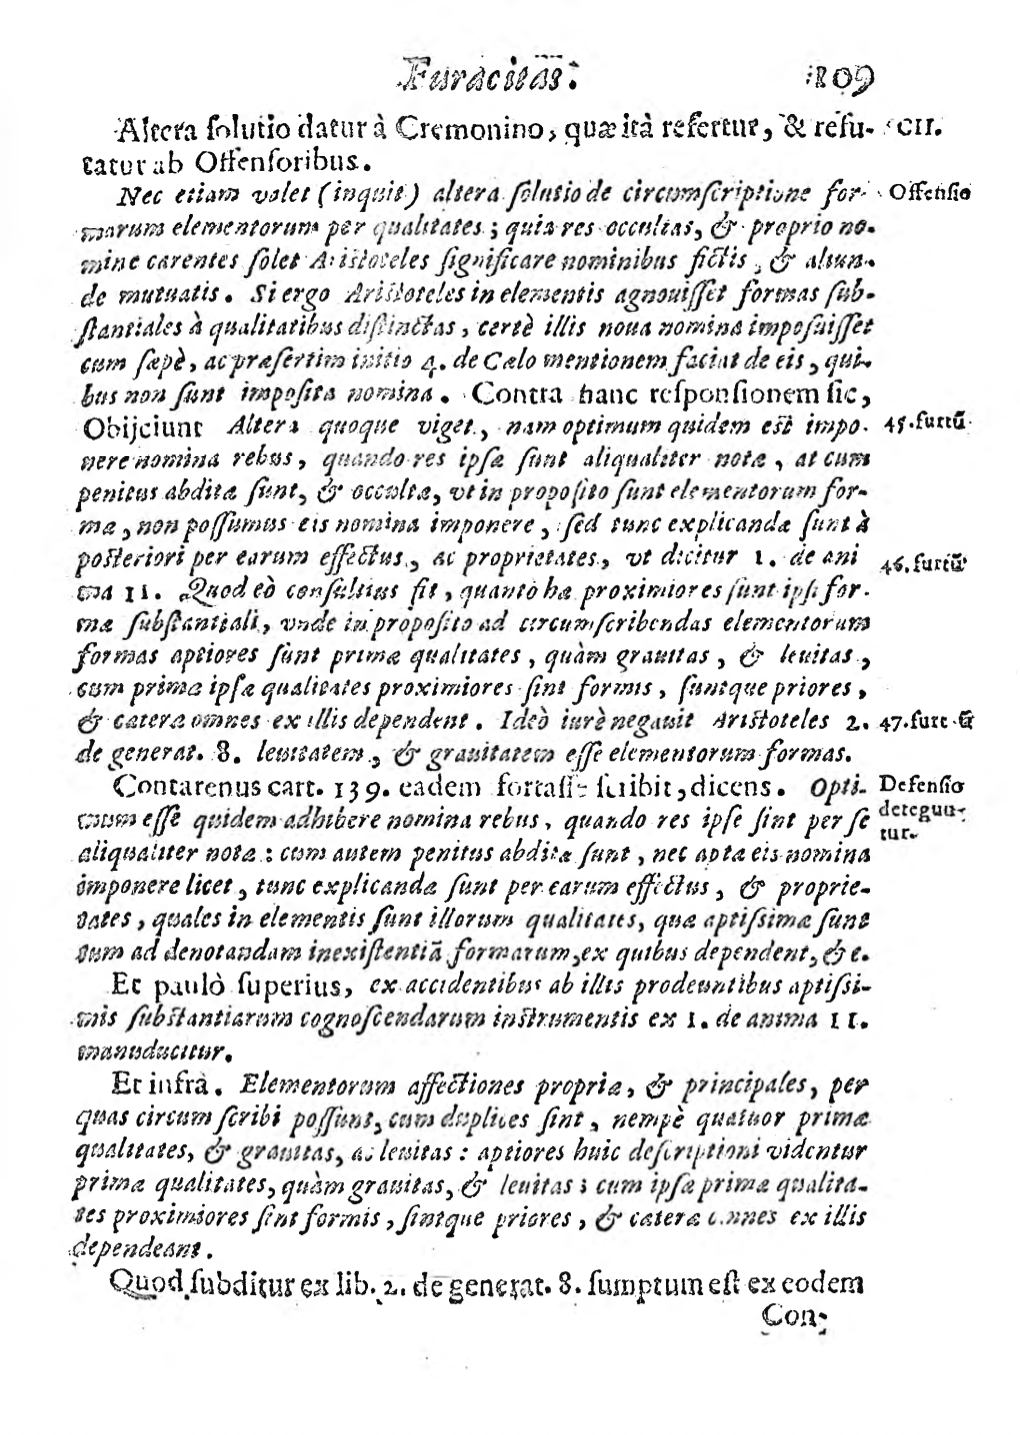 Furacitas. 109
Altera ſolutio datur à Cremonino, quæ ità refertur, & refu- CII.
tatur ab Offenſoribus.
Nec etiam valet (inquit) altera ſolutio de circumſcriptione for- Offenſio
marum elementorum per qualitates; quia res occultas, & proprio no-
mine carentes ſolet Ariſtoteles ſignificare nominibus fictis, & aliun-
de mutuatis. Si ergo Ariſtoteles in elementis agnouiſſet formas ſub-
ſtantiales à qualitatibus diſtinctas, certè illis noua nomina impoſuiſſet
cum ſæpè, ac præſertim initio 4. de Cælo mentionem faciat de eis, qui-
bus non ſunt impoſita nomina. Contra hanc reſponſionem ſic,
Obijciunt Altera quoque viget, nam optimum quidem eſt impo- 45. furtũ
nere nomina rebus, quando res ipſæ ſunt aliqualiter notæ, at cum
penitus abditæ ſunt, & occultæ, vt in propoſito ſunt elementorum for-
mæ, non poſſumus eis nomina imponere, ſed tunc explicandæ ſunt à
poſteriori per earum effectus, ac proprietates, vt dicitur 1. de ani 46. furtũ
ma 11. Quod eò conſultius fit, quanto hæ proximiores ſunt ipſi for-
mæ ſubſtantiali, vnde in propoſito ad circumſcribendas elementorum
formas aptiores ſunt primæ qualitates, quàm grauitas, & leuitas,
cum primæ ipſæ qualitates proximiores ſint formis, ſuntque priores,
& cæteræ omnes ex illis dependent. Ideò iurè negauit Ariſtoteles 2. 47. furtũ
de generat. 8. leuitatem, & grauitatem eſſe elementorum formas.
Contarenus cart. 139. eadem fortaſſe ſcribit, dicens. Opti- Defenſio
mum eſſe quidem adhibere nomina rebus, quando res ipſe ſint per ſe detegun-
tur.
aliqualiter notæ: cum autem penitus abditæ ſunt, nec apta eis nomina
imponere licet, tunc explicandæ ſunt per earum effectus, & proprie-
tates, quales in elementis ſunt illorum qualitates, quæ aptiſſimæ ſunt
tum ad denotandam inexiſtentiã formarum, ex quibus dependent, & e.
Et paulò ſuperius, ex accidentibus ab illis prodeuntibus aptiſſi-
mis ſubſtantiarum cognoſcendarum inſtrumentis ex 1. de anima 11.
manuducitur.
Et infrà. Elementorum affectiones propriæ, & principales, per
quas circumſcribi poſſunt, cum duplices ſint, nempè quatuor primæ
qualitates, & grauitas, ac leuitas: aptiores huic deſcriptioni videntur
primæ qualitates, quàm grauitas, & leuitas; cum ipſæ primæ qualita-
tes proximiores ſint formis, ſintque priores, & cæteræ omnes ex illis
dependeant.
Quod ſubditur ex lib. 2. de generat. 8. ſumptum eſt ex eodem
Con-